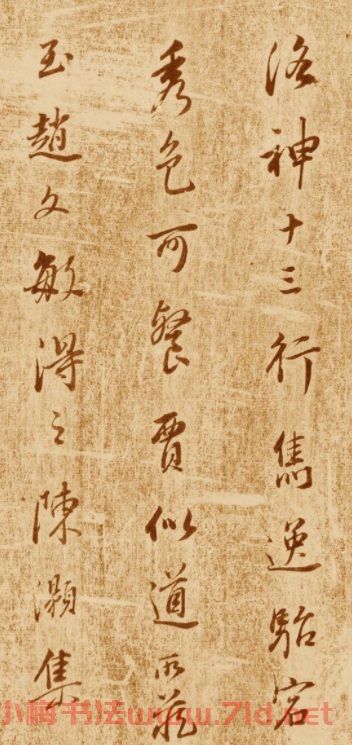 洛神十三行雋逸駘宕
秀色可餐賈似道所藏
玉趙文敏得之陳灝集
小梅书法www.7ld.net